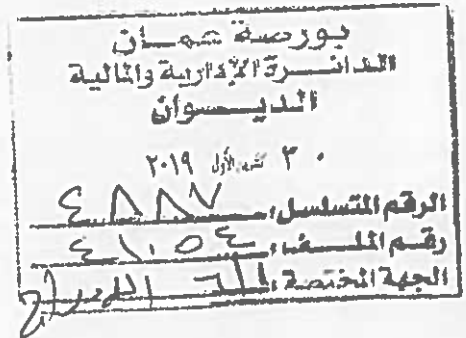 بورصة عمان
الدائرة الإدارية والمالية
الديوان
٣٠ تشرين الأول ٢٠١٩
الرقم المتسلسل: ٤٨٨٧
رقم الملف: ٤١٠٥٤
الجهة المختصة: